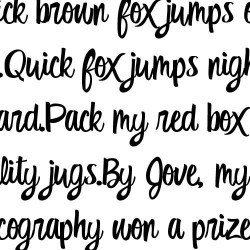 ick brown fox jumps o
.Quick fox jumps nigh
ard.Pack my red box
lity jugs.By Jove, my
cography won a prize